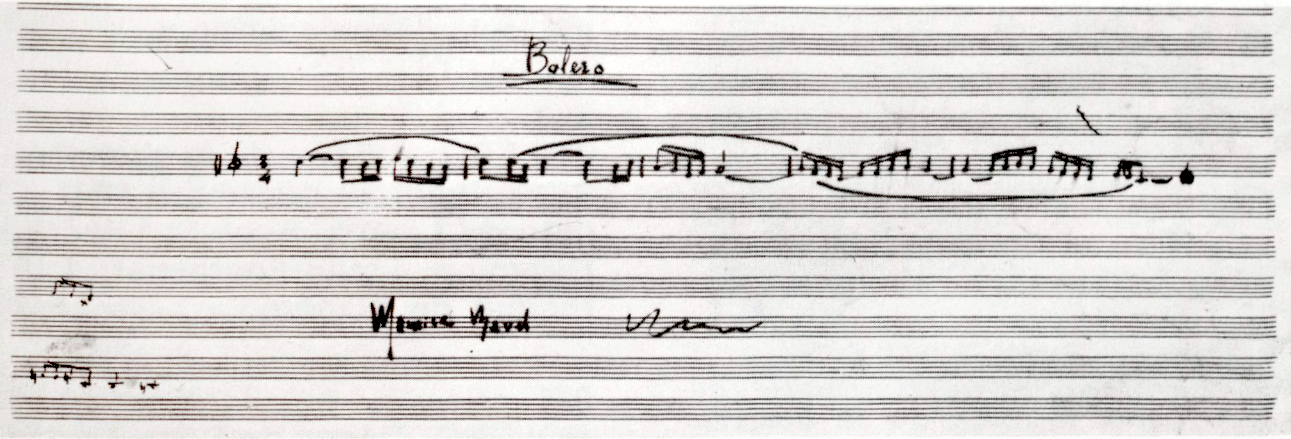 Bolero
3
4
Maurice Ravel